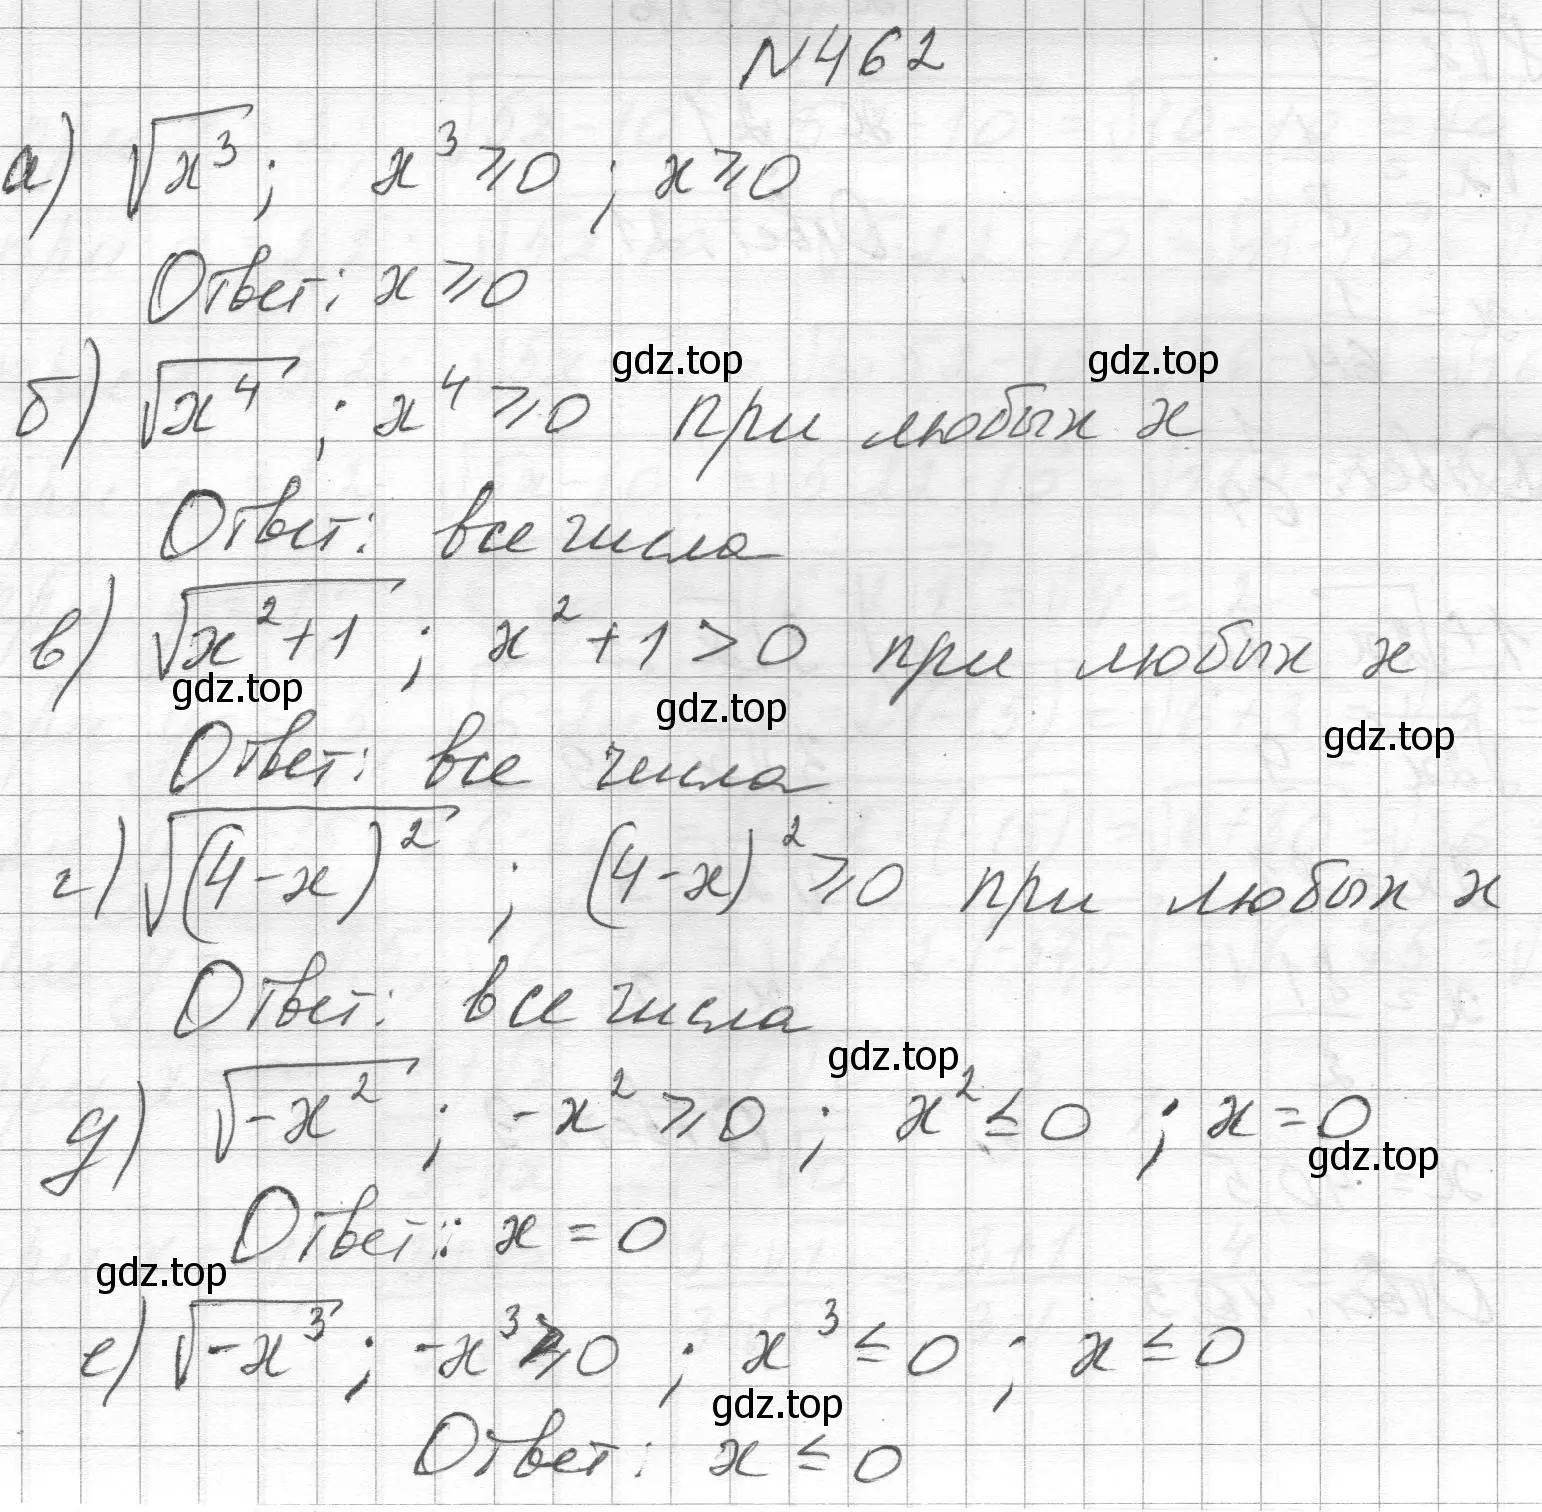 N 462
а) √x³; x³ ⩾ 0; x ⩾ 0
Ответ: x ⩾ 0
gdz.top gdz.top
б) √x⁴; x⁴ ⩾ 0 при любых x
Ответ: все числа
в) √x²+1; x²+1 > 0 при любых x
gdz.top gdz.top gdz.top
Ответ: все числа
г) √(4-x)²; (4-x)² ⩾ 0 при любых x
Ответ: все числа
gdz.top
д) √-x²; -x² ⩾ 0; x² ≤ 0; x = 0
gdz.top
Ответ: x = 0
gdz.top
е) √-x³; -x³ ⩾ 0; x³ ≤ 0; x ≤ 0
gdz.top
Ответ: x ≤ 0